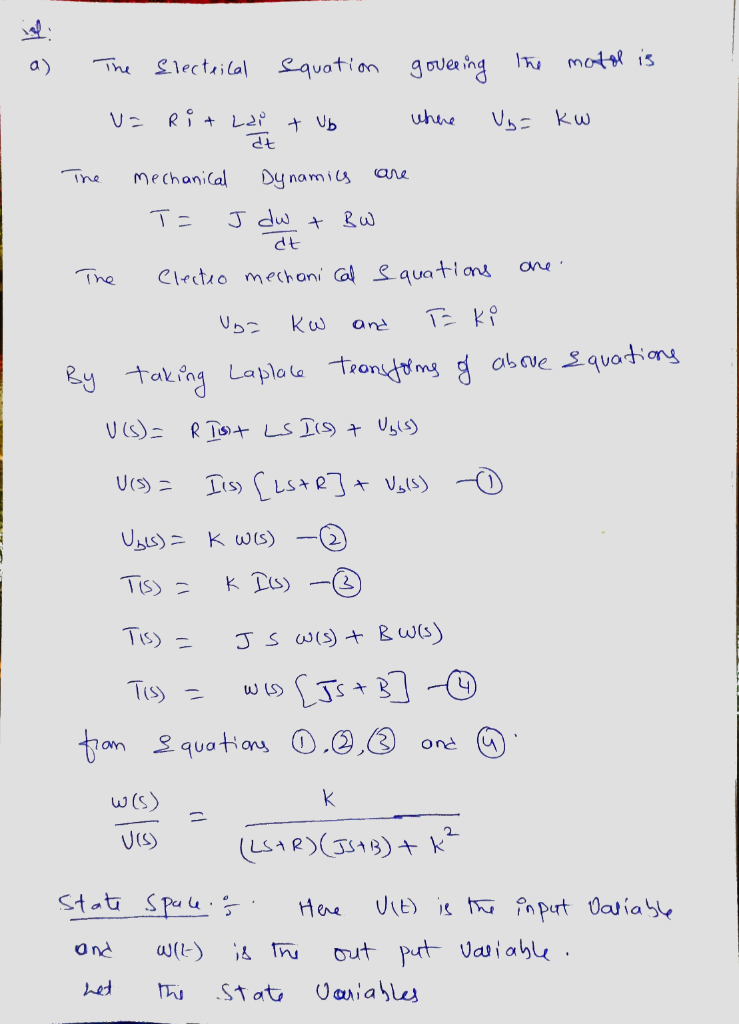 Sol:
a) The Electrical Equation govering the motor is
V = Ri + L di/dt + Vb where Vb = Kw
The mechanical Dynamics are
T = J dw/dt + Bw
The Electro mechanical Equations are.
Vb = Kw and T = Ki
By taking Laplace Transforms of above Equations
V(s) = R I(s) + LS I(s) + Vb(s)
V(s) = I(s) [LS+R] + Vb(s) — ①
Vb(s) = K W(s) — ②
T(s) = K I(s) — ③
T(s) = J S W(s) + B W(s)
T(s) = W(s) [JS + B] — ④
from Equations ①,②,③ and ④.
W(s)/V(s) = K/((LS+R)(JS+B) + K²)
State Space:- Here V(t) is the input Variable
and w(t) is the out put Variable.
Let the State Variables